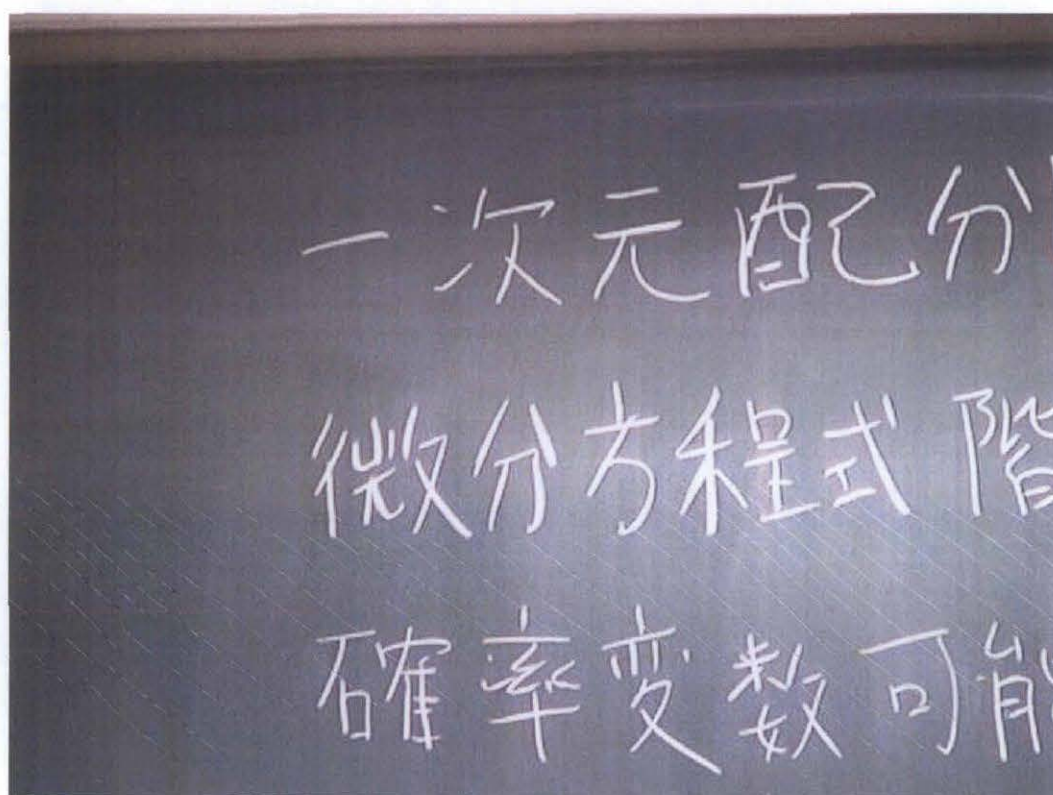 一次元配分
微分方程式階
確率変数可能